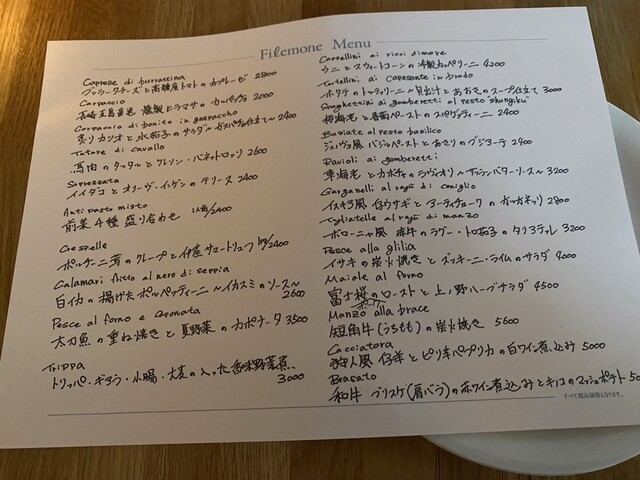 Filemone Menu
Caprese di burrattina
ブッラータチーズと高糖度トマトのカプレーゼ 2800
Carpaccio
長崎五島直送 燻製ヒラマサのカルパッチョ 2000
Carpaccio di bonito in gazpacho
炙りカツオと水茄子のサラダ ガスパチョ仕立て 2400
Tatare di cavallo
馬肉のタルタルとクレソン・パネットロッソ 2600
Sopressata
イイダコとオリーヴ・インゲンのテリーヌ 2400
Antipasto misto
前菜4種盛り合わせ 1人前/2400
Crespelle
ポルチーニ茸のクレープと伊産サマートリュフ 2400
Calamari fritto al nero di seppia
白イカの揚げたポルペッティーニ〜イカスミのソース〜 2600
Pesce al forno e caponata
太刀魚の重ね焼きと夏野菜のカポナータ 3500
Trippa
トリッパ・ギアラ・小腸・大麦の入った香味野菜煮 3000
Cappellini ai ricci dimare
ウニとスウィートコーンの冷製カペリーニ 4200
Tortellini ai Capesante in brodo
ホタテのトルテッリーニ〜貝出汁とあおさのスープ仕立て 3000
Spaghettini ai gamberetti al pesto "shungiku"
桜海老と春菊ペーストのスパゲッティーニ 2400
Busiate al pesto basilico
ジェノヴァ風バジルペーストとあさりのブジアーテ 2400
Ravioli ai gamberetti
車海老とカボチャのラヴィオリ〜バターソース〜 3200
Garganelli al ragù di coniglio
イスキア風 白ウサギとアーティチョークのガルガネッリ 2800
Tagliatelle al ragù di manzo
ボローニャ風 赤牛のラグー・トロ茄子のタリアテッレ 3200
Pesce alla griglia
イサキの炭火焼きとズッキーニ・ライムのサラダ 4000
Maiale al forno
富士桜ポークのローストと上ノ野ハーブサラダ 4500
Manzo alla brace
短角牛(うちもも)の炭火焼き 5600
Cacciatora
狩人風 仔羊とピリキパプリカの白ワイン煮込み 5000
Brasato
和牛 ブリスケ(肩バラ)の赤ワイン煮込みとキノコのマッシュポテト
すべて税込価格となります。